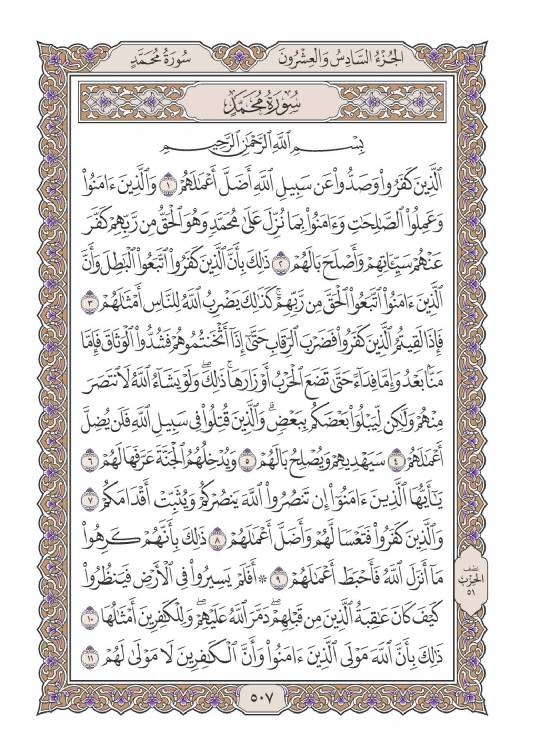 الجُزْءُ السَّادِسُ وَالْعِشْرُونَ
سُورَةُ مُحَمَّدٍ
سُورَةُ مُحَمَّدٍ
بِسْمِ اللَّهِ الرَّحْمَٰنِ الرَّحِيمِ
ٱلَّذِينَ كَفَرُوا۟ وَصَدُّوا۟ عَن سَبِيلِ ٱللَّهِ أَضَلَّ أَعْمَٰلَهُمْ ١ وَٱلَّذِينَ ءَامَنُوا۟
وَعَمِلُوا۟ ٱلصَّٰلِحَٰتِ وَءَامَنُوا۟ بِمَا نُزِّلَ عَلَىٰ مُحَمَّدٍ وَهُوَ ٱلْحَقُّ مِن رَّبِّهِمْ كَفَّرَ
عَنْهُمْ سَيِّـَٔاتِهِمْ وَأَصْلَحَ بَالَهُمْ ٢ ذَٰلِكَ بِأَنَّ ٱلَّذِينَ كَفَرُوا۟ ٱتَّبَعُوا۟ ٱلْبَٰطِلَ وَأَنَّ
ٱلَّذِينَ ءَامَنُوا۟ ٱتَّبَعُوا۟ ٱلْحَقَّ مِن رَّبِّهِمْ ۚ كَذَٰلِكَ يَضْرِبُ ٱللَّهُ لِلنَّاسِ أَمْثَٰلَهُمْ ٣
فَإِذَا لَقِيتُمُ ٱلَّذِينَ كَفَرُوا۟ فَضَرْبَ ٱلرِّقَابِ حَتَّىٰٓ إِذَآ أَثْخَنتُمُوهُمْ فَشُدُّوا۟ ٱلْوَثَاقَ فَإِمَّا
مَنًّۢا بَعْدُ وَإِمَّا فِدَآءً حَتَّىٰ تَضَعَ ٱلْحَرْبُ أَوْزَارَهَا ۚ ذَٰلِكَ ۖ وَلَوْ يَشَآءُ ٱللَّهُ لَٱنتَصَرَ
مِنْهُمْ وَلَٰكِن لِّيَبْلُوَا۟ بَعْضَكُم بِبَعْضٍ ۗ وَٱلَّذِينَ قُتِلُوا۟ فِى سَبِيلِ ٱللَّهِ فَلَن يُضِلَّ
أَعْمَٰلَهُمْ ٤ سَيَهْدِيهِمْ وَيُصْلِحُ بَالَهُمْ ٥ وَيُدْخِلُهُمُ ٱلْجَنَّةَ عَرَّفَهَا لَهُمْ ٦
يَٰٓأَيُّهَا ٱلَّذِينَ ءَامَنُوٓا۟ إِن تَنصُرُوا۟ ٱللَّهَ يَنصُرْكُمْ وَيُثَبِّتْ أَقْدَامَكُمْ ٧
وَٱلَّذِينَ كَفَرُوا۟ فَتَعْسًا لَّهُمْ وَأَضَلَّ أَعْمَٰلَهُمْ ٨ ذَٰلِكَ بِأَنَّهُمْ كَرِهُوا۟
مَآ أَنزَلَ ٱللَّهُ فَأَحْبَطَ أَعْمَٰلَهُمْ ٩ ۞ أَفَلَمْ يَسِيرُوا۟ فِى ٱلْأَرْضِ فَيَنظُرُوا۟
كَيْفَ كَانَ عَٰقِبَةُ ٱلَّذِينَ مِن قَبْلِهِمْ ۖ دَمَّرَ ٱللَّهُ عَلَيْهِمْ ۖ وَلِلْكَٰفِرِينَ أَمْثَٰلُهَا ١٠
ذَٰلِكَ بِأَنَّ ٱللَّهَ مَوْلَى ٱلَّذِينَ ءَامَنُوا۟ وَأَنَّ ٱلْكَٰفِرِينَ لَا مَوْلَىٰ لَهُمْ ١١
نصف
الحزب
٥١
٥٠٧